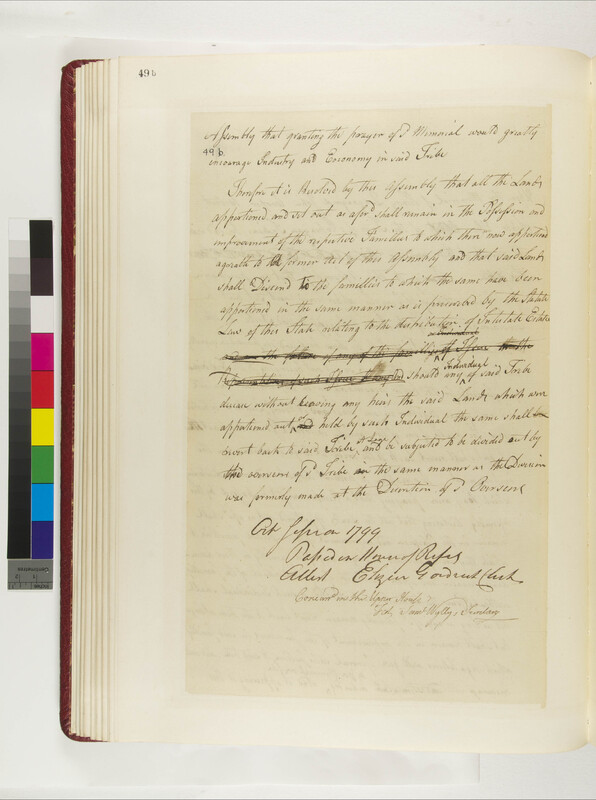 49b
Assembly that granting the prayer of sd Memorial would greatly
49 b.
encourage Industry and Economy in said Tribe
Therefore it is Resolved by this Assembly that all the Lands
apportioned and set out as aforsd shall remain in the Possession and
improvement of the respective Families to which there now apportiond
agreable to the former Act of this Assembly and that said Lands
shall Discend to the families to which the same have been
apportioned in the same manner as is prescribed by the Statute
Law of this State relating to the distribution of Intestate Estates
of
should any Individual of said Tribe
decease without leaving any heirs the said Lands which were
apportioned out and held by such Individual the same shall
revert back to said Tribe and be subjected to be divided out by
the overseers of sd Tribe in the same manner as the Division
was formerly made at the Discretion of sd Overseers
Oct Session 1799
Passed in House of Reps
Attest Elizur Goodrich Clerk
Concurrd in the Upper House
Test, Saml Wyllys, Secretary